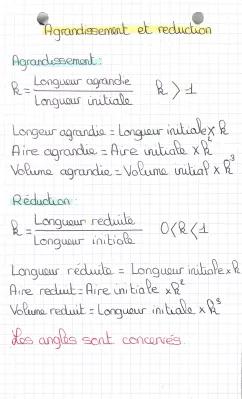 Agrandissement et reduction
Agrandissement:
k = Longueur agrandie / Longueur initiale k > 1
Longeur agrandie = Longueur initiale x k
Aire agrandie = Aire initiale x k²
Volume agrandie = Volume initial x k³
Réduction:
k = Longueur reduite / Longueur initiale 0<k<1
Longueur réduite = Longueur initiale x k
Aire reduit = Aire initiale x k²
Volume reduit = Longueur initiale x k³
Les angles sont concervés.